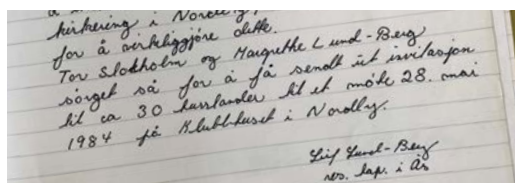 kirkering i Nordby,
for å virkeliggjøre dette.
Tor Slokholm og Margrethe Lund-Berg
sørget så for å få sendt ut invitasjon
til ca 30 husstander til et møte 28. mai
1984 på Klubbhuset i Nordby.
Leif Lund-Berg
res. kap. i Ås